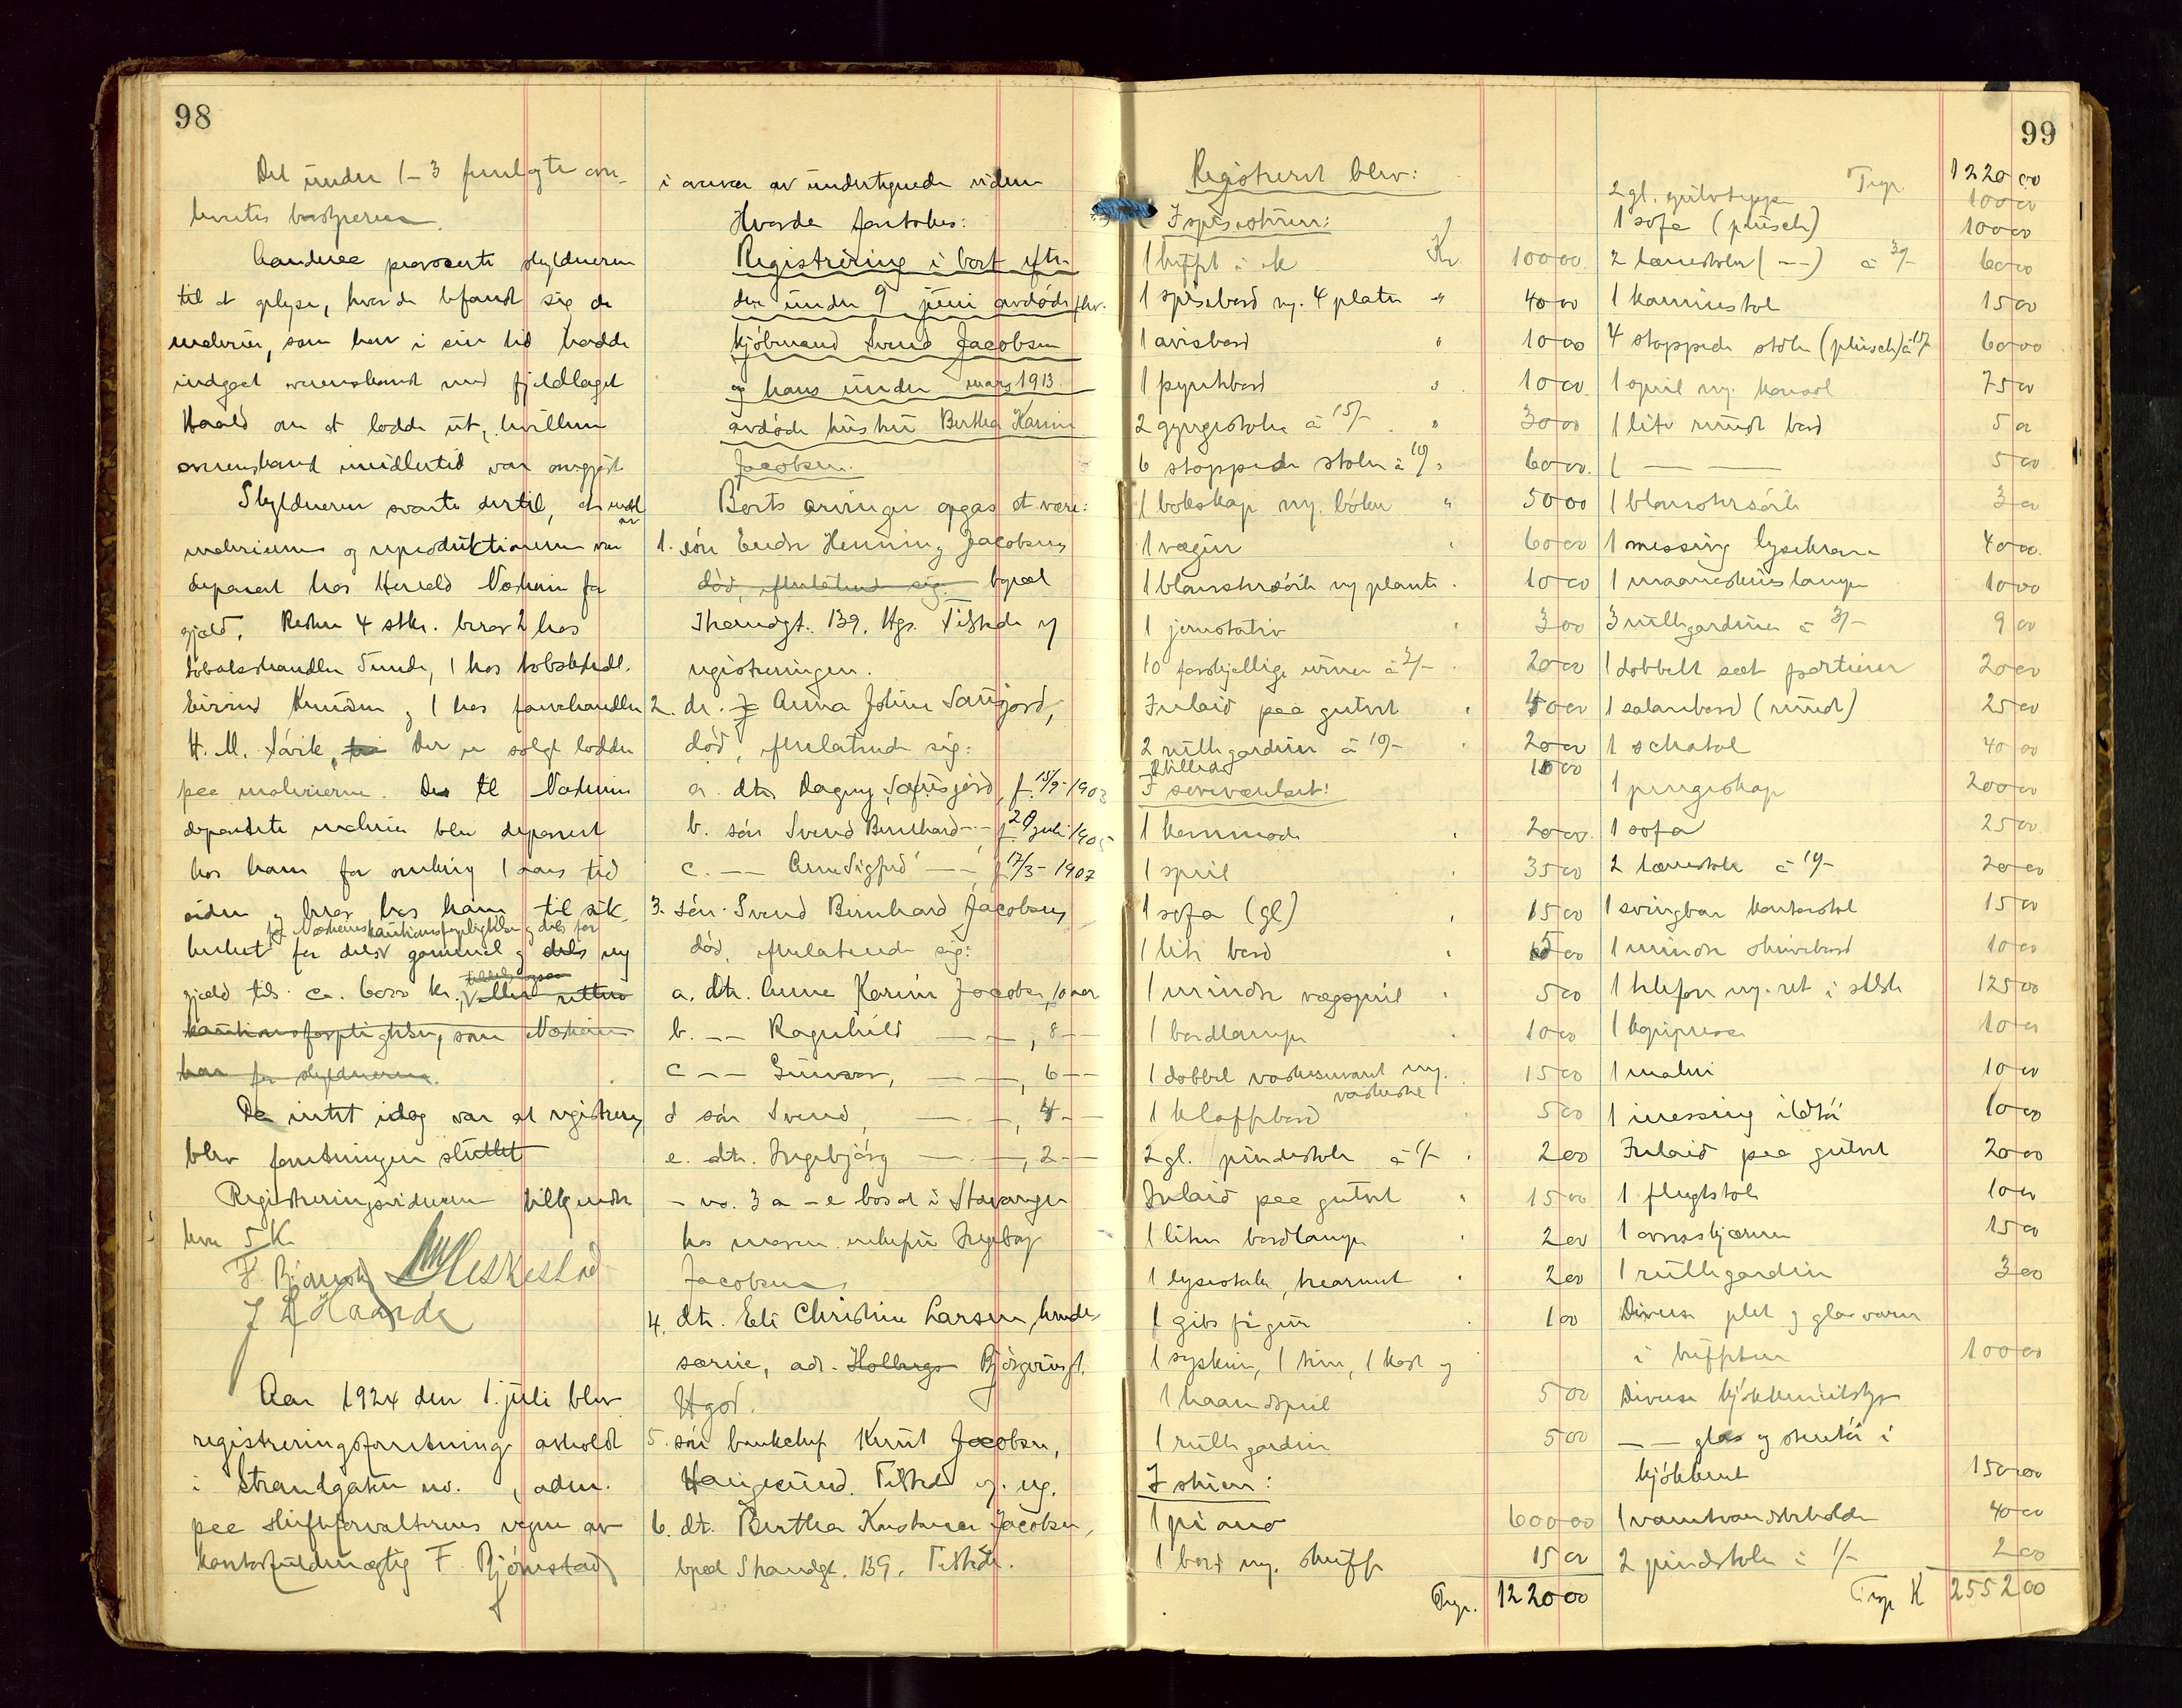 98
Det under 1-3 fremlagte om-
hvertes bortskrives
Haandverk provoserte skyldneren
til at oplyse, hvor de befandt sig de
malerier, som han i sin tid hadde
indgaat overenskomst med fjeldlaget
Haald om at lodde ut, hvilken
overenskomst imidlertid var omgjort.
Skyldneren svarte dertil, at endel av
malerierne og reproduktionerne var
deponert hos Harald Naxheim for
gjæld. Resten 4 stkr. beror 2 hos
tobakshandler Tunde, 1 hos tobakshdl.
Eivind Knudsen og 1 hos farvehandler
H. M. Søvik, Der er solgt lodder
paa malerierne. De til
deponerte malerier blev deponert
hos ham for omkring 1 aars tid
siden og beror hos ham til sik-
for kautionsforpligtelse og dels for
kerhet for dels gammel og dels ny
gjæld til ca. 6000 kr.
kautionsforpligtelser, som
har for skyldneren.
Da intet idag var at registrere,
blev forretningen sluttet
Registreringsvidnerne tilkjendtes
hver 5 K.
F. Bjørnstad
J L Haarde
Aar 1924 den 1. juli blev
registreringsforretning avholdt
i Strandgaten no. , adm.
paa skifteforvalterens vegne av
kontorfuldmægtig F. Bjørnstad
i nærvær av undertegnede vidner
Hvorda foretokes:
Registrering i boet efter
den under 9 juni avdøde fhv.
kjøbmand Svend Jacobsen
og hans under mars 1913
avdøde hustru Bertha Karine
Jacobsen.
Boets arvinger opgas at være:
1. søn Endre Henning Jacobsen,
død, efterlatende sig bopæl
Strandgt. 139, Hgs. Tilstede v.
registreringen.
2. dr. Anna Joline Sausjord,
død, efterlatende sig:
a. dtr. Dagny Sausjord, f. 15/9-1903
b. søn Svend Bernhard — f. 20 juli 1905
c. — Arne Sigfred — f 17/3-1907
3. søn Svend Bernhard Jacobsen,
død, efterlatende sig:
a. dtr. Anne Karine Jacobsen, 10 aar
b. — Ragnhild — — , 8 —
c — Gunvor, — — , 6 —
d søn Svend, — — , 4 —
e. dtr. Ingebjørg — — , 2 —
- no. 3 a - e bosat i Stavanger
hos moren enkefru Ingeborg
Jacobsen
4. dtr. Eli Christine Larsen,
særeie, adr. Holbergs Bjørgvinsgt.
Hgsd.
5. søn bankchef Knut Jacobsen,
Haugesund. Tilsted v. reg.
6. dt. Bertha Konstanse Jacobsen,
bopæl Strandgt. 139. Tilstede.
99
Registrert blev:
I spisestuen:
1 buffet i ek Kr 100 00
1 spisebord m. 4 plater " 40 00
1 avisbord " 10 00
1 pyntebord " 10 00
2 gyngestoler à 15/- " 30 00
6 stoppede stoler à 10/- " 60 00
1 bokskap m. bøker " 50 00
1 vægur " 60 00
1 blomstersøile m plante " 10 00
1 jernstativ " 3 00
10 forskjellige urner à 2/- " 20 00
Inlaid paa gulvet " 40 00
2 rullegardiner à 10/- " 20 00
Billeder 10 00
I soveværelset:
1 kommode " 20 00
1 speil " 35 00
1 sofa (gl) " 15 00
1 lite bord " 5 00
1 mindre vægspeil " 5 00
1 bordlampe " 10 00
1 dobbel vaskeservant m.
vaskestel 15 00
1 klaffbord " 5 00
2 gl. pindestole à 1/- " 2 00
Inlaid paa gulvet " 15 00
1 liten bordlampe " 2 00
1 lysestake, trearmet " 2 00
1 gibs figur 1 00
1 syskrin, 1 trin, 1 kost og
1 haandspeil 5 00
1 rullegardin 5 00
I stuen:
1 piano 600 00
1 bord m. skuffe 15 00
Trsp. 1220 00
Trsp. 1220 00
2 gl. gulvtepper 100 00
1 sofa (plusch) 100 00
2 lænestoler (—) à 30/- 60 00
1 kaminstol 15 00
4 stoppede stoler (plusch) à 15/- 60 00
1 speil m. konsol 75 00
1 lite rundt bord 5 00
1 — — 5 00
1 blomstersøile 3 00
1 messing lysekrone 40 00
1 maaneskinslampe 10 00
3 rullegardiner à 3/- 9 00
1 dobbelt sæt portierer 20 00
1 salonbord (rundt) 25 00
1 schatol 40 00
1 pengeskap 200 00
1 sofa 25 00
2 lænestole à 10/- 20 00
1 svingbar kontorstol 15 00
1 mindre skrivebord 10 00
1 telefon m. ret i selsk. 125 00
1 kopipresse 10 00
1 maleri 10 00
1 messing ildtøi 10 00
Inlaid paa gulvet 20 00
1 flugtstol 10 00
1 ovnsskjærm 15 00
1 rullegardin 3 00
Diverse plet og glasvarer
i buffeten 100 00
Diverse kjøkkenutstyr
— glas og stentøi i
kjøkkenet 150 00
1 varmtvandsbeholder 40 00
2 pindstoler à 1/- 2 00
Trsp K 2552 00